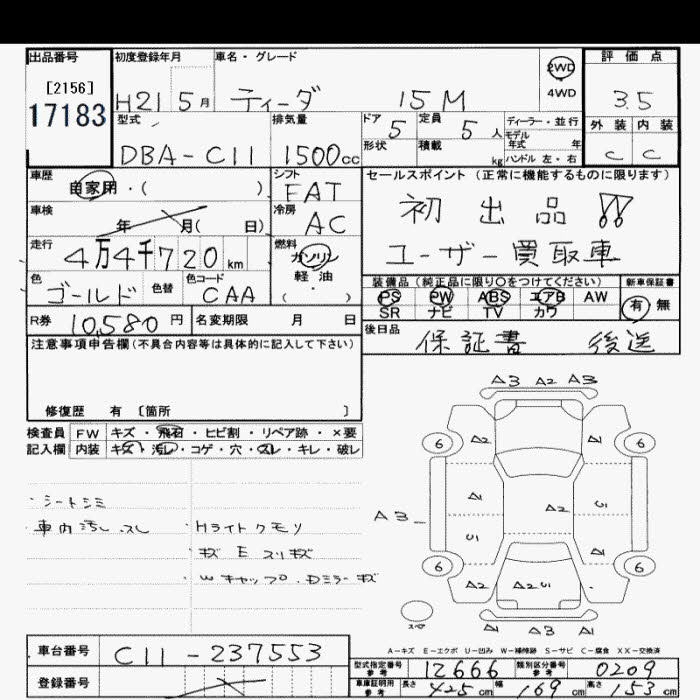 出品番号 初度登録年月 車名・グレード 2WD 評価点
[2156] 4WD
17183 H21 5月 ティーダ 15M 3.5
型式 排気量 ドア 定員 ディーラー・並行 外装 内装
5 5人 モデル年式 年
DBA-C11 1500cc 形状 積載 kg ハンドル 左・右 C C
車歴 シフト セールスポイント (正常に機能するものに限ります)
自家用・( ) FAT 初出品!!
車検 冷房
年 月( 日) AC
走行 燃料 ユーザー買取車
4万4千720km ガソリン
色 色替 色コード 軽・油 装備品 (純正品に限り○をつけてください) 新車保証書
ゴールド CAA ・( ) PS PW ABS エアB AW 有 無
SR ナビ TV カワ
R券 10,580円 名変期限 月 日 後日品 保証書 後送
注意事項申告欄(不具合内容等は具体的に記入して下さい)
修復歴 有 [箇所 ]
検査員 FW キズ・飛石・ヒビ割・リペア跡・×要
記入欄 内装 キズ・汚レ・コゲ・穴・スレ・キレ・破レ
A3 A2 A3
6 A2 A1 6
・シートシミ A1 A2 U1
・車内汚レ.スレ ・Hライトクモリ A3 U1 A1
・キズ E スリキズ 6 6
・Wキャップ.Dミラーキズ A2 A2 U1
スペア A1 A3 A1
A-キズ E-エクボ U-凹み W-補修跡 S-サビ C-腐食 XX-交換済
車台番号 C11-237553
型式指定番号 参考 12666 類別区分番号 参考 0209
登録番号 車庫証明用 参考 長さ 425cm 幅 169cm 高さ 153cm